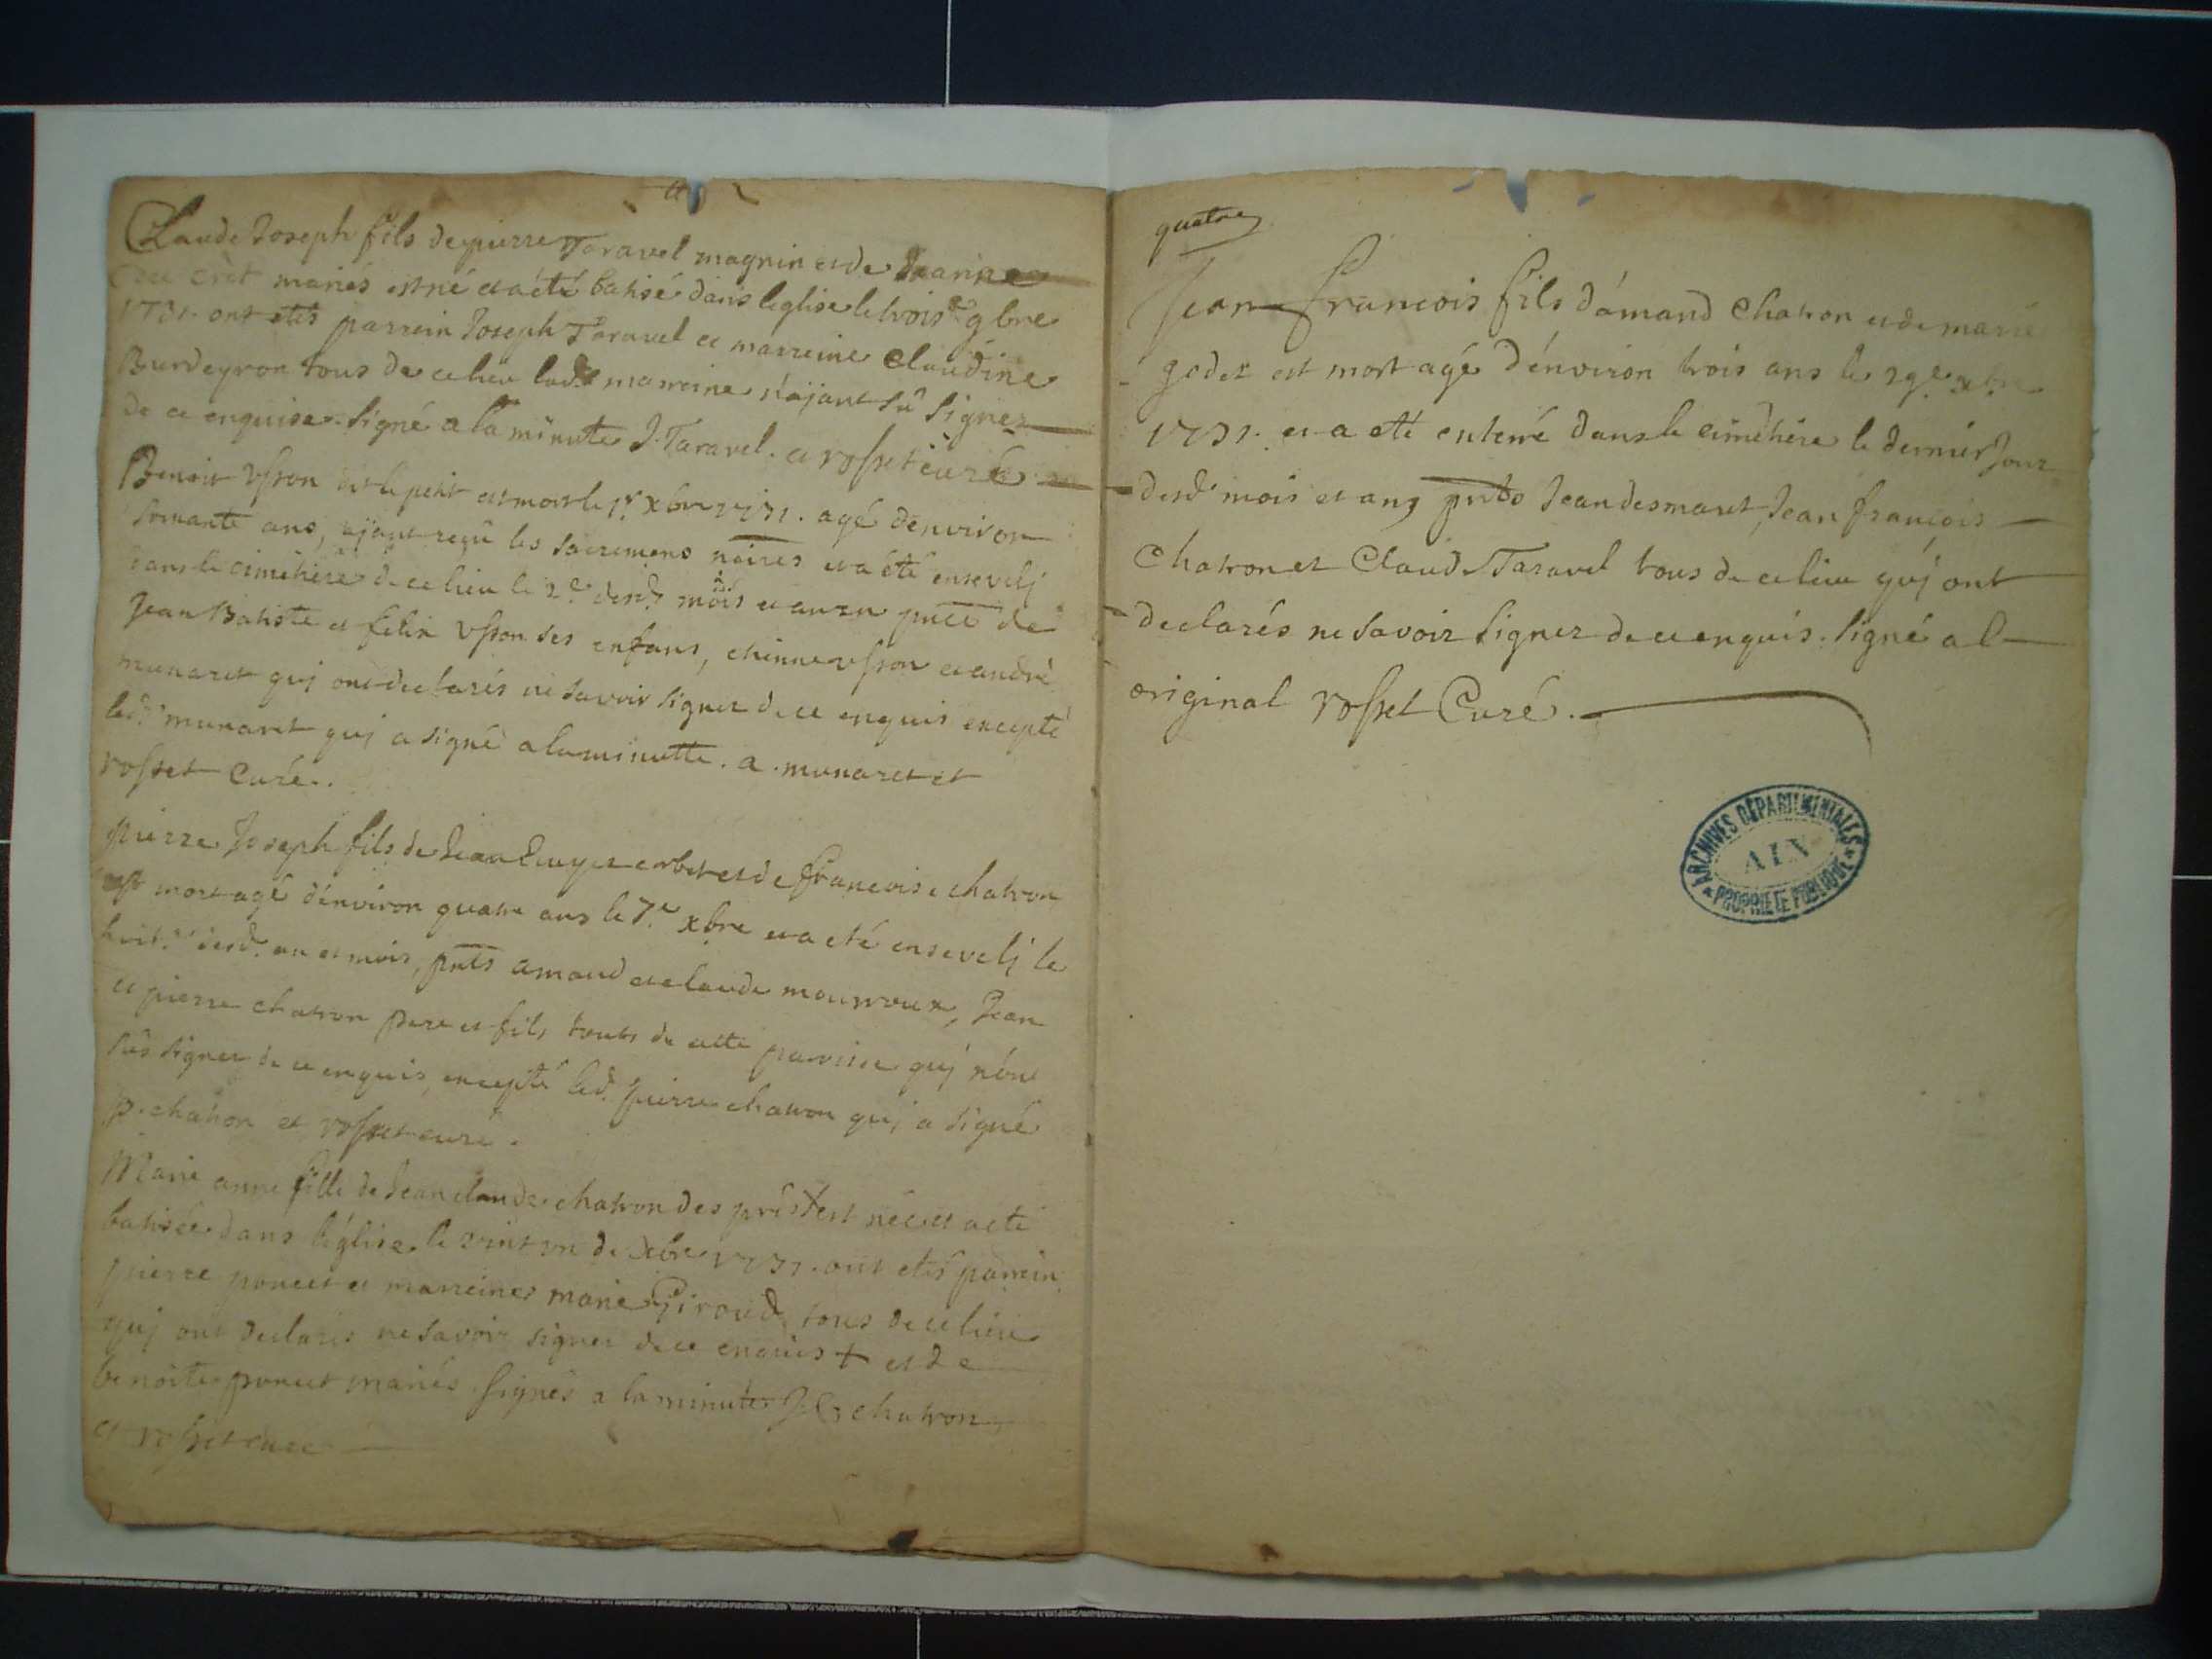 Claude Joseph fils de pierre Taravel magnin et de Jeanne
crêt mariés est né et a été batisé dans leglise le trois.e 9bre
1731. ont etés parrein Joseph Taravel et marreine Claudine
Burdeyron tous de ce lieu lad.e marreine n'ajant sû signer
de ce enquise. signé a la minute J. Taravel. et rosset curé
Benoit Usson dit le petit est mort le 1.r xbre 1731. agé d'environ
soixante ans, ajant reçû les sacremens nôires et a été ensevelj
dans le cimethière de ce lieu le 2.e desd. mois et an en pnce de
Jean Batiste et felix Usson ses enfans, etienne usson et andré
munaret quj ont declarés ne savoir signer de ce enquis excepté
led. munaret quj a signé a la minutte. a. munaret et
rosset Curé.
pierre Joseph fils de Jean corbet et de francoise chatron
est mort agé d'environ quatre ans le 7.e xbre et a eté ensevelj le
huit.e desd. an et mois, pnts amand et claude mourroux, Jean
et pierre chatron pere et fils touts de cette paroisse quj n'ont
sus signer de ce enquis, excepté led. pierre chatron quj a signé
p. chatron et rosset curé.
Marie anne fille de Jean claude chatron des prés + est née et a eté
batisée dans l'église le vint un de xbre 1731. ont etés parrein
pierre poncet et marreine marie Giroud tous de ce lieu
quj ont declarés ne savoir signer de ce enquis + et de
benoite poncet mariés. signés a la minute J C chatron
et rosset curé
quatre
Jean francois fils d'amand Chatron et de marie
godet est mort agé d'énviron trois ans le 29.e xbre
1731. et a eté enterré dans le cimethière le dernier Jour
desd. mois et ans pnts Jean desmaret, Jean francois
Chatron et Claude Taravel tous de ce lieu quj ont
declarés ne savoir signer de ce enquis. signé a l
original rosset Curé.
ARCHIVES DÉPARTEMENTALES
AIN
PROPRIÉTÉ PUBLIQUE